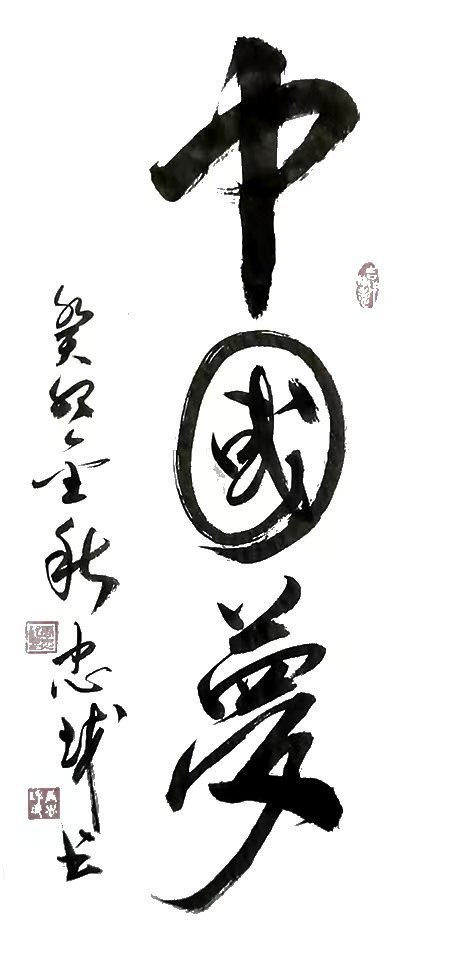 中國夢
癸卯金秋忠斌书